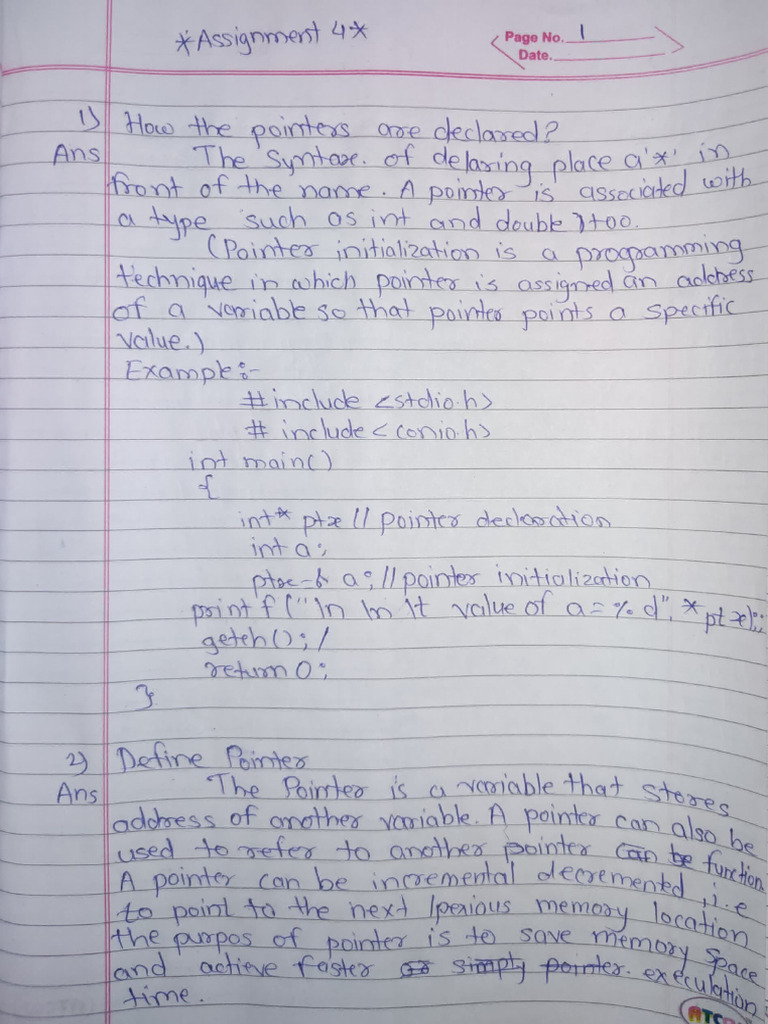 *Assignment 4*
Page No. 1
Date.
1) How the pointers are declared?
Ans The Syntax. of delaring place a '*' in
front of the name. A pointer is associated with
a type such as int and double too.
(Pointer initialization is a programming
technique in which pointer is assigned an address
of a variable so that pointer points a specific
value.)
Example:-
#include <stdio.h>
# include <conio.h>
int main()
{
int* ptr // pointer declaration
int a;
ptr=& a; // pointer initialization
printf ("\n \n \t value of a = % d", *ptr);
getch(); /
return 0;
}
2) Define Pointer
Ans The Pointer is a variable that stores
address of another variable. A pointer can also be
used to refer to another pointer can be function
A pointer can be incremental decremented, i.e
to point to the next /perious memory location
the purpos of pointer is to save memory space
and actieve faster or simply pointer. execulation
time.